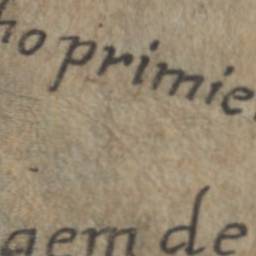 ho primie
gem de